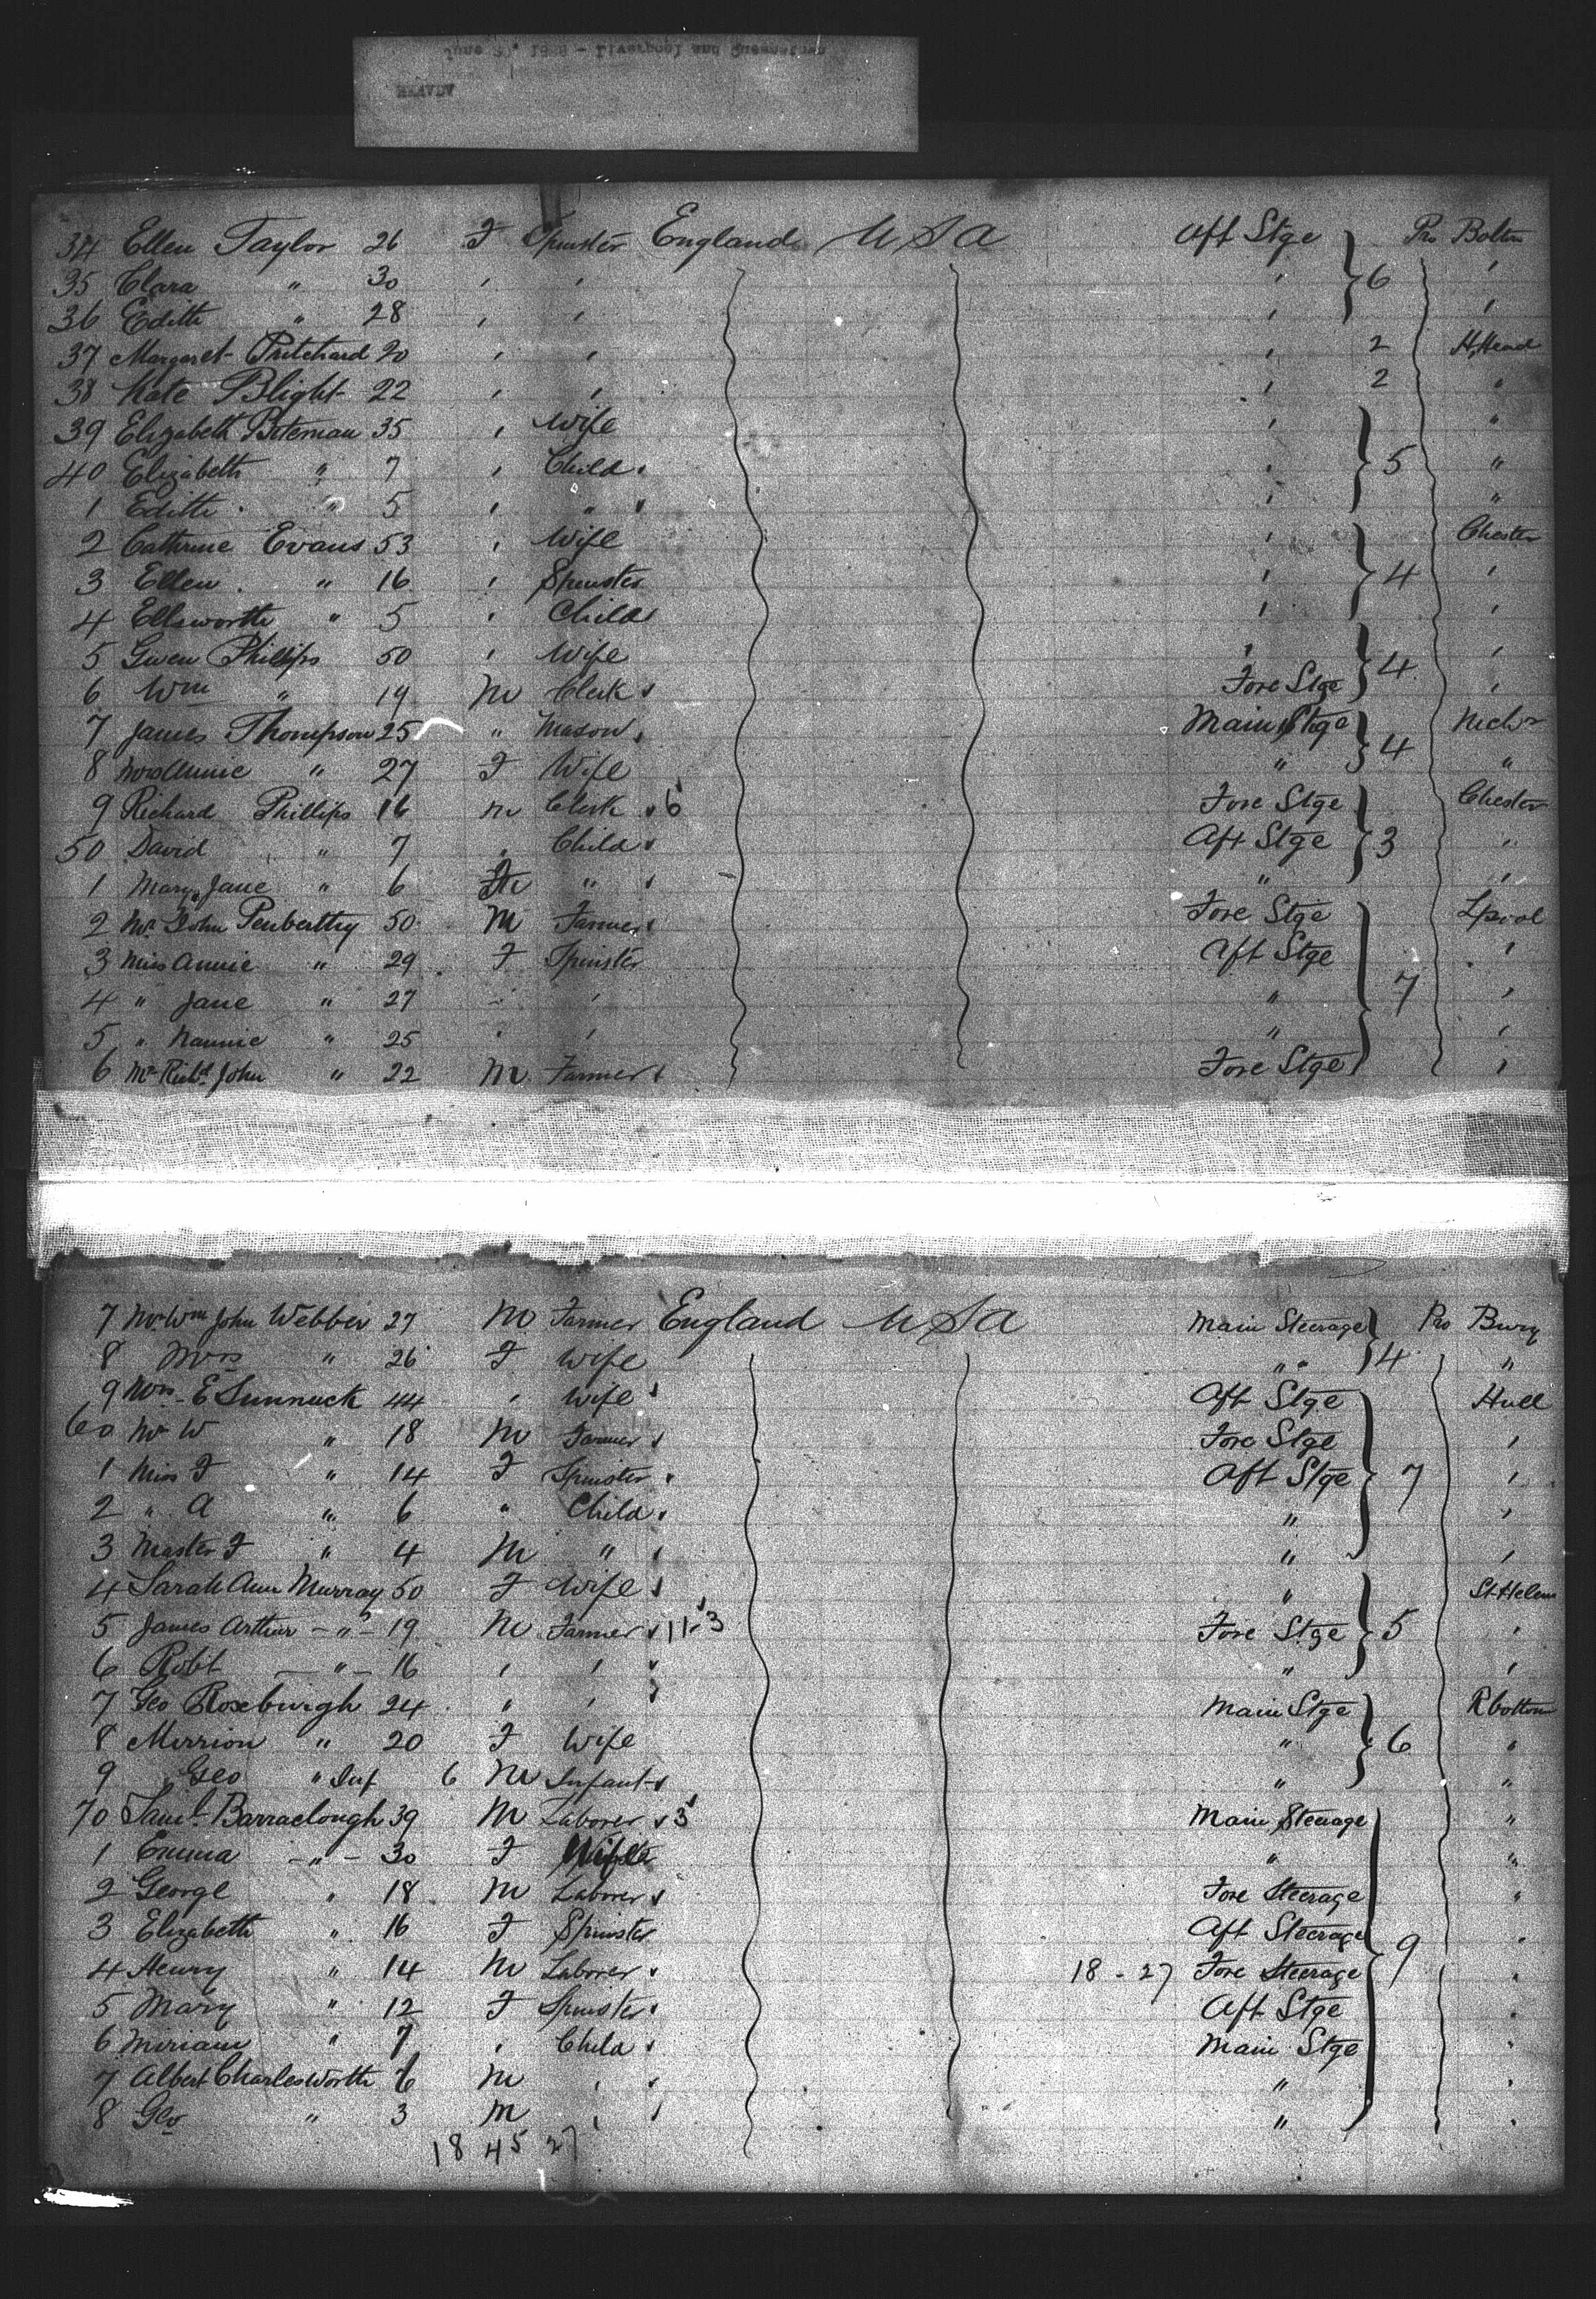 34 Ellen Taylor 26 F Spinster England U S A Aft Stge Pro Bolton
35 Clara " 30 " " " 6 "
36 Edith " 28 " " " "
37 Margaret Pritchard 20 " " " 2 H,Head
38 Kate Blight 22 " " " 2 "
39 Elizabeth Bateman 35 " Wife " "
40 Elizabeth " 7 " Child " 5 "
1 Edith " 5 " " " "
2 Cathrine Evans 53 " Wife " Chester
3 Ellen " 16 " Spinster " 4 "
4 Ellsworth " 5 " Child " "
5 Gwen Phillips 50 " Wife " 4 "
6 Wm " 19 M Clerk Fore Stge "
7 James Thompson 25 " Mason Main Stge 4
8 Mrs Annie " 27 F Wife " "
9 Richard Phillips 16 M Clerk 6 Fore Stge Chester
50 David " 7 " Child Aft Stge 3 "
1 Mary Jane " 6 F " " "
2 Mr John Penberthy 50 M Farmer Fore Stge Lpool
3 Miss Annie " 29 F Spinster Aft Stge "
4 " Jane " 27 " " " 7 "
5 " Nannie " 25 " " " "
6 Mr Richd John " 22 M Farmer Fore Stge "
7 Mr Wm John Webber 27 M Farmer England U S A Main Steerage Pro Bury
8 Mrs " 26 F Wife " " 4 "
9 Mrs E Sunnuck 44 " Wife Aft Stge Hull
60 Mr W " 18 M Farmer Fore Stge "
1 Miss F " 14 F Spinster Aft Stge 7 "
2 " A " 6 " Child " "
3 Master F " 4 M " " "
4 Sarah Ann Murray 50 F Wife " St Helens
5 James Arthur - " - 19 M Farmer 11 3 Fore Stge 5 "
6 Robt - " - 16 " " " "
7 Geo Roseburgh 24 " " Main Stge Rbottom
8 Merrion " 20 F Wife " 6 "
9 Geo " Inf 6 M Infant " "
70 Saml Barraclough 39 M Laborer 3 Main Steerage "
1 Emma - " - 30 F Wife " "
2 George " 18 M Laborer Fore Steerage "
3 Elizabeth " 16 F Spinster Aft Steerage "
4 Henry " 14 M Laborer 18 - 27 Fore Steerage 9 "
5 Mary " 12 F Spinster Aft Stge "
6 Miriam " 7 " Child Main Stge "
7 Albert Charlesworth 6 M " " "
8 Geo " 3 M " " "
18 45 27